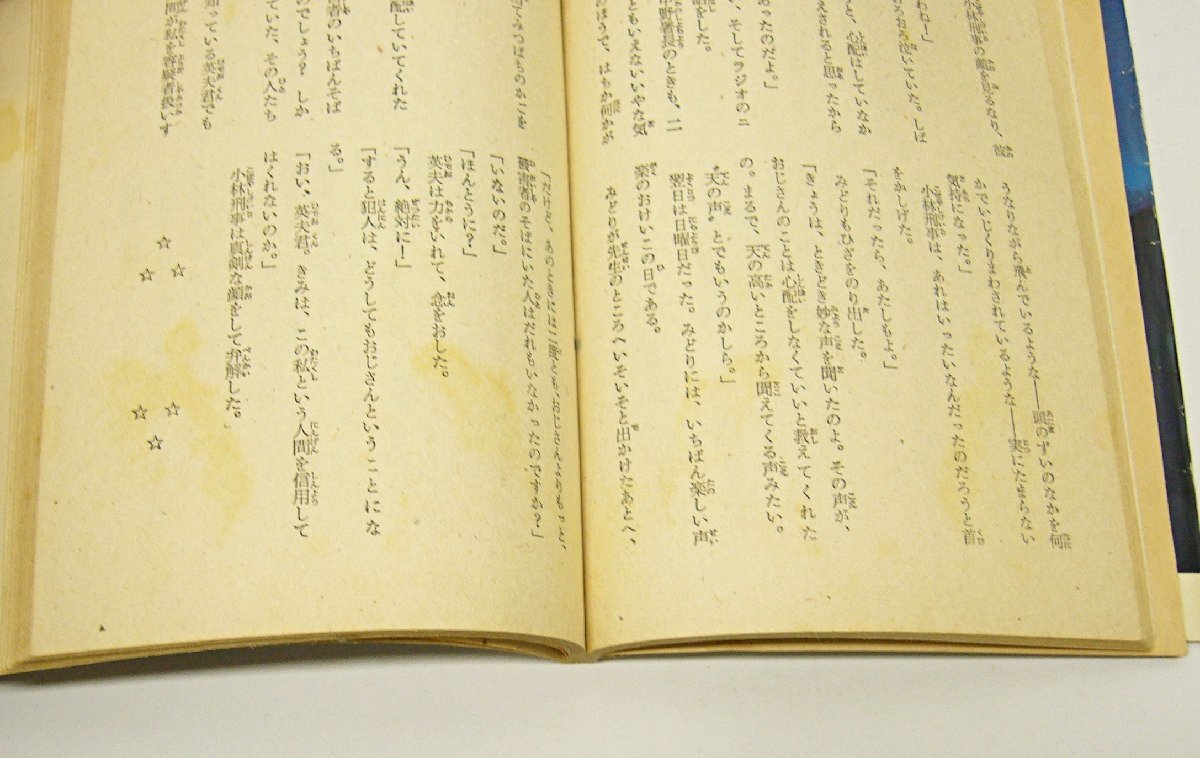 小林刑事の顔を見るなり、彼
えされると思ったから
と、心配はしていなか
あったのだよ。」
、そしてラジオのニ
をした。
署長のときも、二
ともいえないいやな気
のほうで、はちか何かが
うなりながら飛んでいるような──頭のずいのなかを何
かでいじくりまわされているような──実にたまらない
気持になった。」
小林刑事は、あれはいったいなんだったのだろうと首
をかしげた。
「それだったら、あたしもよ。」
みどりもひざをのり出した。
「きょうは、ときどき妙な声を聞いたのよ。その声が、
おじさんのことは心配をしなくていいと教えてくれた
の。まるで、天の高いところから聞えてくる声みたい。
天の声、とでもいうのかしら。」
翌日は日曜日だった。みどりには、いちばん楽しい声
楽のおけいこの日である。
みどりが先生のところへいそいそと出かけたあとへ、
みつばちのかごを
配していてくれた
者のいちばんそば
のでしょう？　しか
ていた、その人たち
知っている英夫君でも
が私を容疑者扱いす
「だけど、あのときには二度とも、おじさんよりもっと、
被害者のそばにいた人はだれもいなかったのですか？」
「いないのだ。」
「ほんとうに？」
英夫は力をいれて、念をおした。
「うん、絶対に！」
「すると犯人は、どうしてもおじさんということにな
る。」
「おい、英夫君。きみは、この私という人間を信用して
はくれないのか。」
小林刑事は真剣な顔をして弁解した。」
☆
☆ ☆
☆ ☆
☆